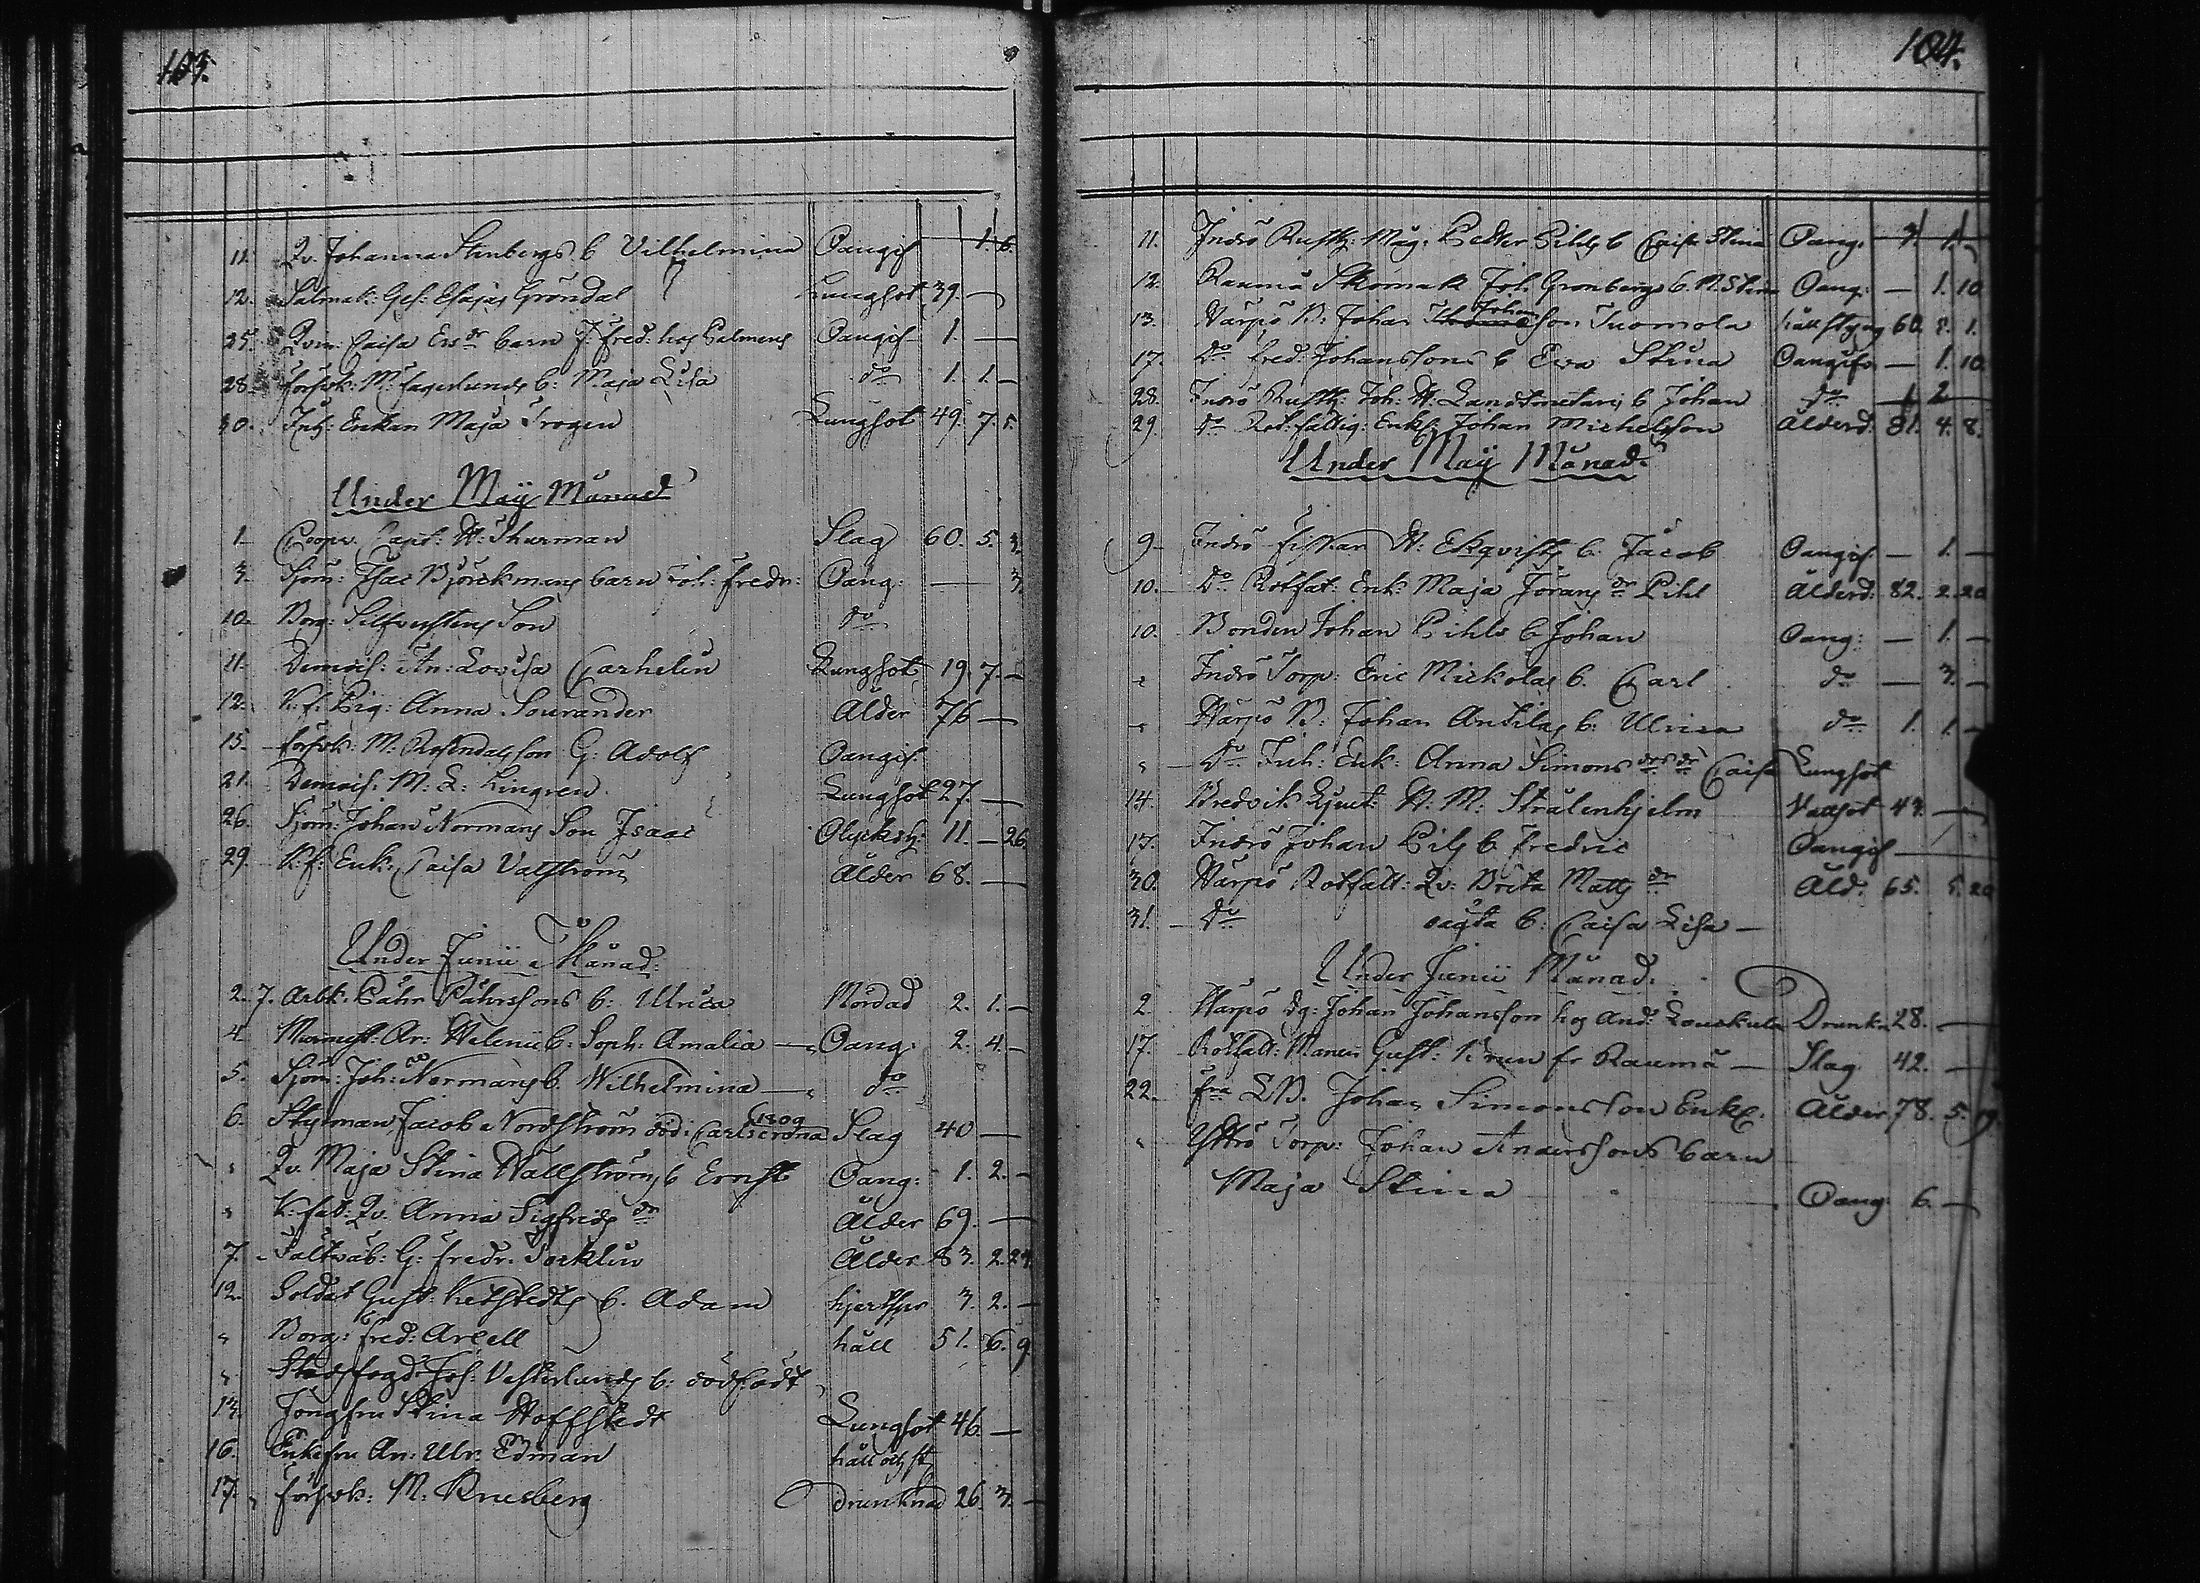 103.
11. Qv. Johanna Stenbergs b Vilhelmina Oangif — 1. 6.
12. Salmak: Ges: Esajas Gröndal Lungsot 39. —
25. Qvin: Caisa Ersdr barn J: Fred: hos Palmens Oangif 1. —
28. försvk: M: Fagerlunds b: Maja Lisa do 1. 1. —
30. Inh: Enkan Maja Trogen Lungsot 49. 7. 5.
Under Maij Månad
1. Coopv. Capt: H: Thurman Slag 60. 5. 3.
3. Sjöm: Isac Björckmans barn Joh: Fredr: Oang: — 3.
10. Borg: Silfverstens Son do
11. Demois: An: Lovisa Carhelin Lungsot 19. 7. —
12. K. f. Pig: Anna Sourander Ålder 76 —
15. försvk: M: Rosendals son G: Adolf Oangif.
21. Demois. M: L: Lingren Lungsot 27. —
26. Sjöm: Johan Normans Son Isaac Olycksh: 11. — 26
29. K: f: Enk: Caisa Valström Ålder 68. —
Under Junii Månad.
2. 7. Arbk. Påhr Påhrssons b: Ulrica Mördad 2. 1. —
4. Murmest: An: Helenii b: Soph: Amalia — Oang: 2. 4. —
5. Sjöm: Joh: Normans b. Wilhelmina — do
6. Styrman Jacob Nordström död i Carlscrona 1809 Slag 40 —
" Qv. Maja Stina Wallströms b Ernst Oang: 1. 2. —
" K: fat: Qv. Anna Sigfrids dr Ålder 69. —
7. Fältväb: G: Fredr. Torklin Ålder 83. 2. 24.
12. Soldat Gust: Ketstedts b. Adam hjertspr 3. 2. —
" Borg: Fred: Arcell håll 51. 6. 9.
" Stadsfogd: Joh: Vesterlunds b: dödfödt
13. Jongfru Stina Hoffstedt Lungsot 46. —
16. Enkefru An: Ulr: Edman håll och st
17. försvk: M. Brusberg drunknad 26. 3. —
104.
11. Inderö Rusth: Måg: Petter Pihls b Caisa Stina Oang: 3 1. —
12. Raumå Skomak Joh. Grönbergs b. M. Stina Oang: — 1. 10
13. Harpö B: Johan Johansson Tuomola hållstyng 60. 8. 1.
17. Do Fred: Johanssons b Eva Stina Oangifv — 1. 10.
28. Inderö Rusth: Joh: H: Landtmetaris b Johan do 1 2
29. Do Rotfattig: Enkl: Johan Michelsson Ålderd: 81. 4. 8.
Under Maij Månad.
9. Inderö Fiskar H: Ekqvists b. Jacob Oangif — 1. —
10. Do Rotfat: Enk: Maja Jörans dr Pihl Ålderd: 82. 2. 20
10. Bonden Johan Pihls b Johan Oang: — 1. —
" Inderö Torp: Eric Mickolas b. Carl do — 3. —
" Harpö B: Johan Antilas b: Ulrica do 1. 1. —
" Do Inh: Enk: Anna Simons drs dr Caisa Lungsot
14. Bredvik Löjnt: H. M: Strålenhjelm Vattsot 43. —
15. Inderö Johan Pils b Fredric Oangif —
30. Harpö Rotfatt: Qv: Brita Matts dr Åld: 65. 5. 20
31. Do oäqta b: Caisa Lisa —
Under Junii Månad.
2. Harpö dg: Johan Johansson hos And: Louskula Drunkn 28. —
17. Rotfatt: Manen Gust: Brun fr Raumå — Slag 42. —
22. fra LB. Johan Simonsson Enkl: Ålder 78. 5. 19.
" Yttrö Torp: Johan Anderssons barn
Maja Stina Oang 6. —